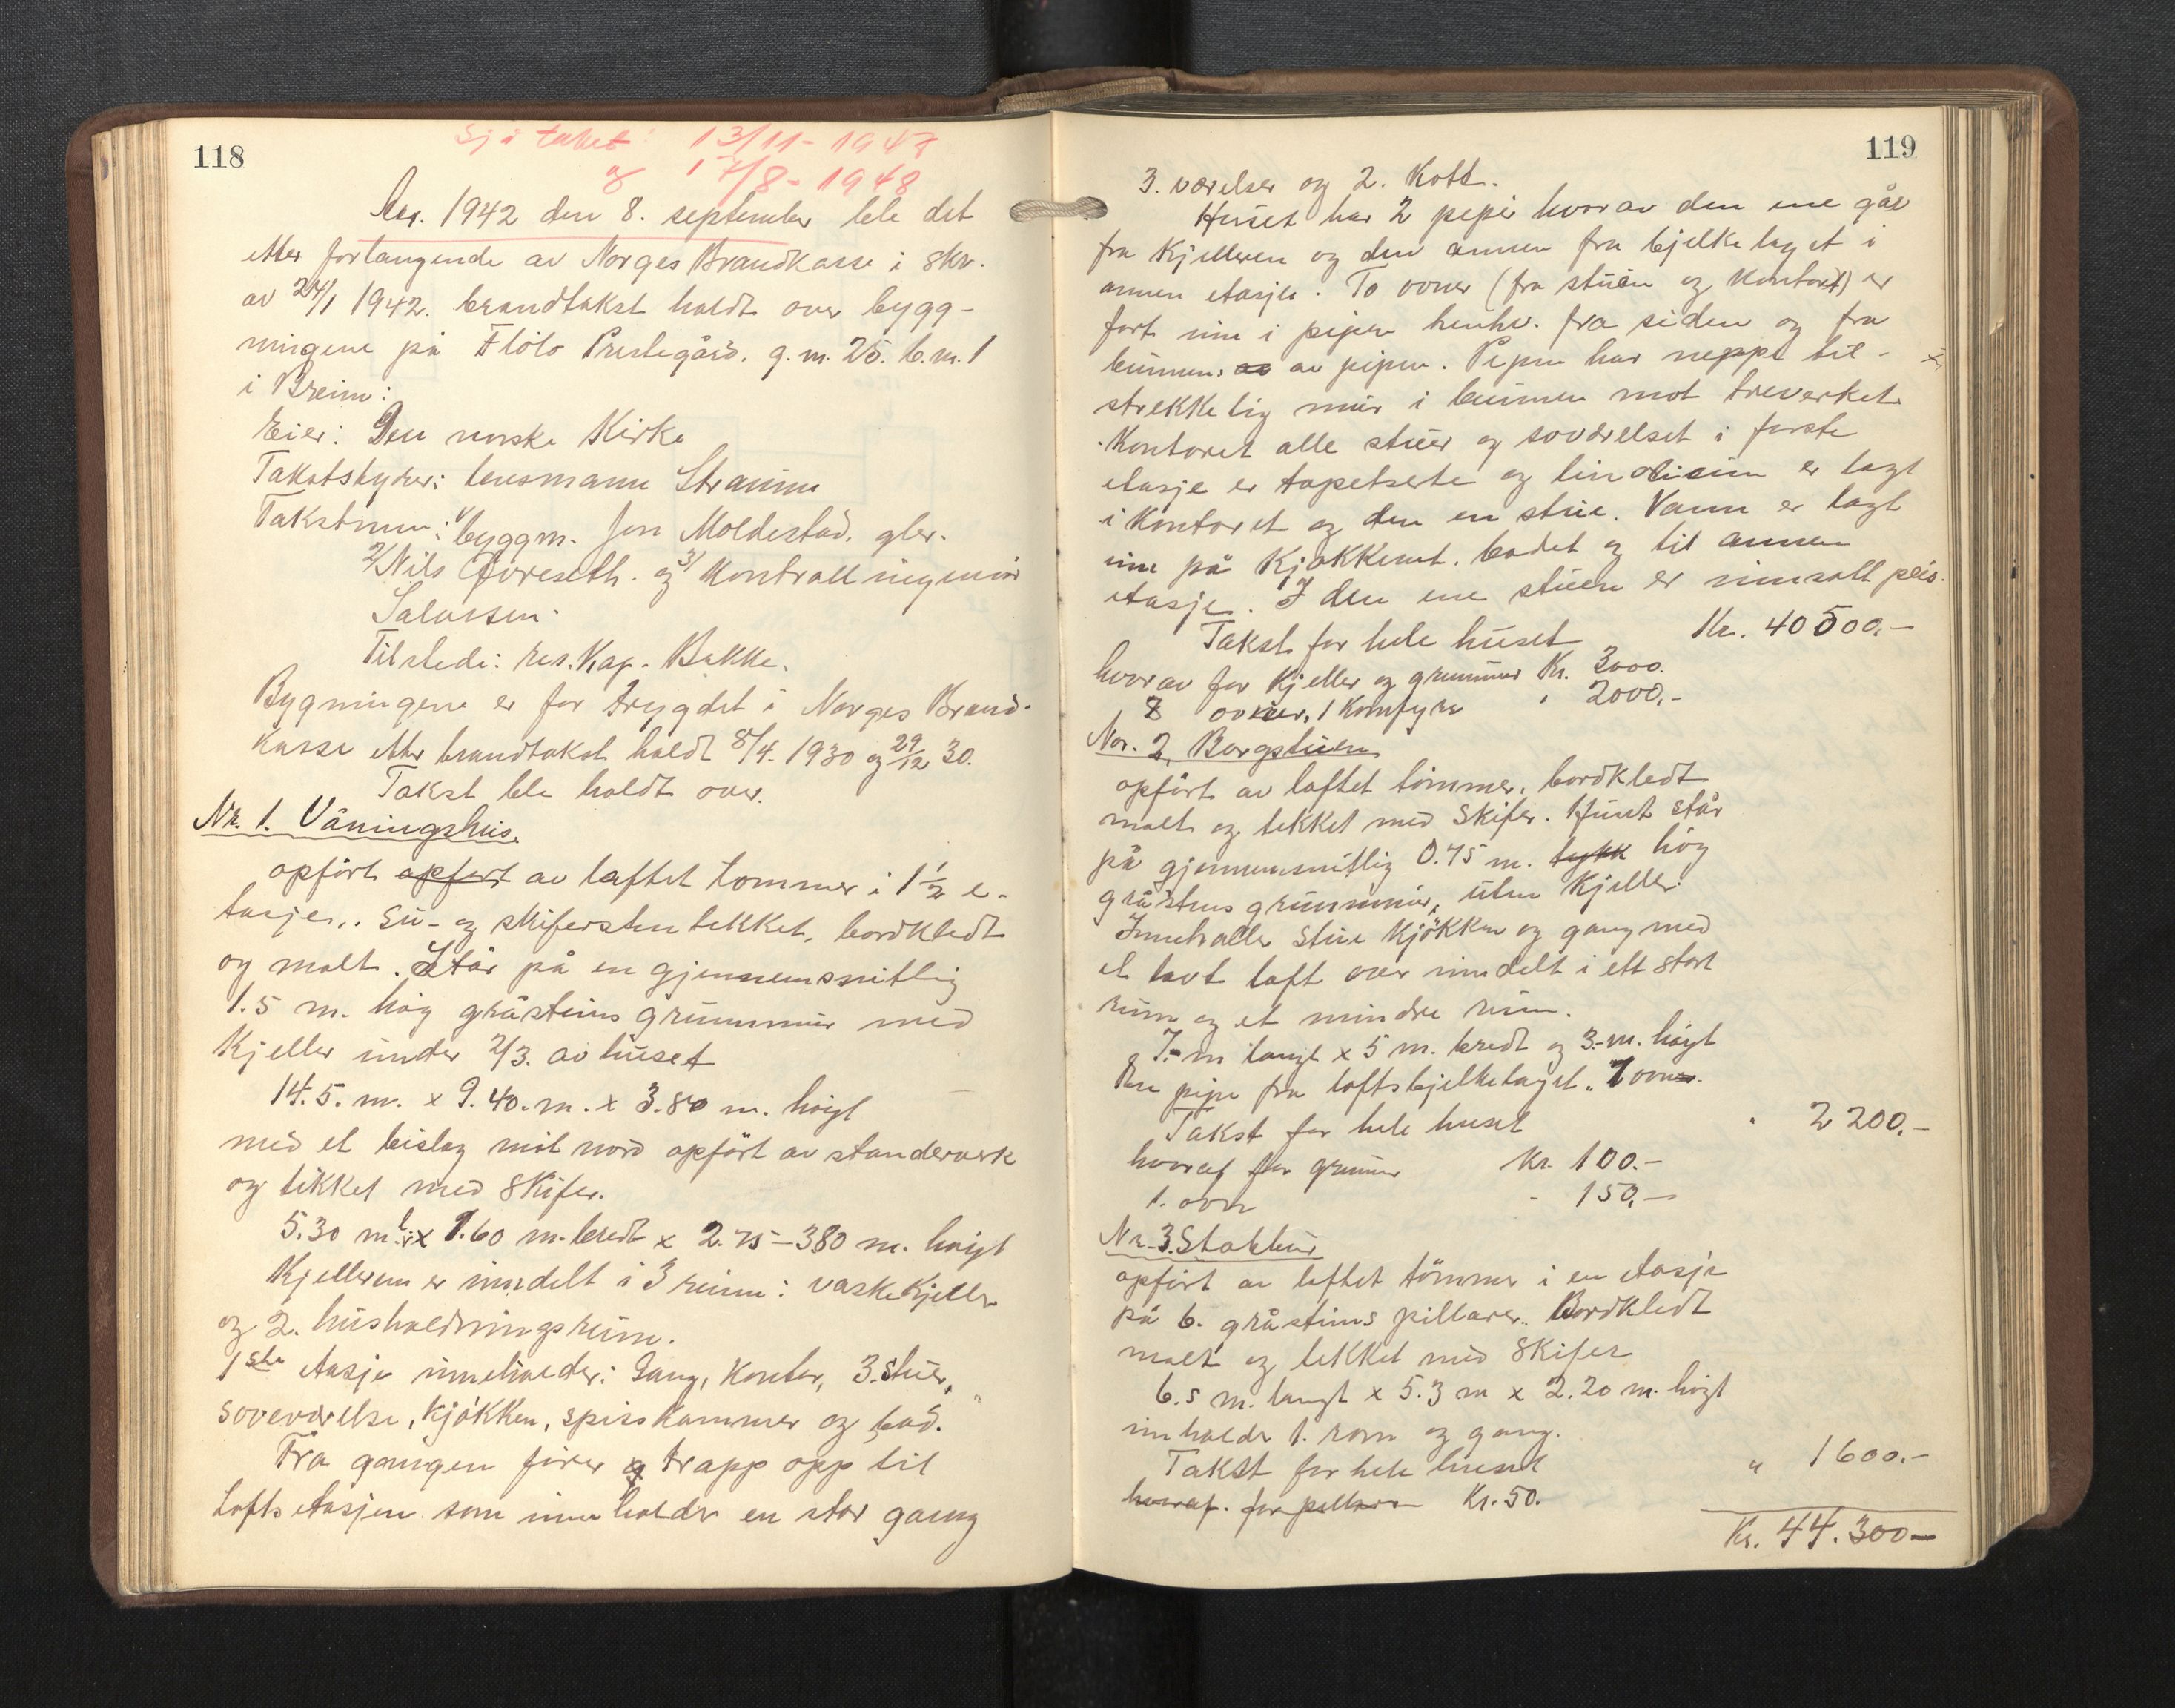 118
Sjå takst 13/11-1947
og 17/8-1948
År. 1942 den 8. september ble det
etter forlangende av Norges Brandkasse i skr.
av 24/1 1942. brandtakst holdt over bygg-
ningene på Flölo Prestegård. g.n. 25. b.n. 1
i Breim:
Eier: Den norske Kirke
Takstbstyrer: lensmann Straume
Takstmenn: 1/ byggm. Jon Moldestad. gbr.
2/ Nils Øvreseth. og 3/ Kontrollingeniör
Salvesen.
Tilstede: res. Kap. Bakke.
Bygningene er for trygdet i Norges Brand-
kasse etter brandtakst holdt 8/4. 1930 og 29/12 30.
Takst ble holdt over.
Nr. 1. Våningshus.
opfört opfört av laftet tommer i 1½ e-
tasjer. Su- og skifersten tekket, bordkledt
og malt. Står på en gjennemsnitlig
1.5 m. høg gråsteins grunnmur med
Kjeller under 2/3. av huset
14.5. m. x 9.40. m. x 3.80 m. höigt
med et bislag mot nord opfört av standerverk
og tekket med Skifer.
5.30 m l. x 1.60 m. bredt x 2.75-380 m. høigt
Kjelleren er inndelt i 3 rum: vaskekjeller
og 2. husholdningsrum.
1ste etasje inneholder: Gang, Kontor, 3. stuer,
soveværelse, kjökken, spisskammer og bad.
Fra gangen förer og trapp opp til
Loftsetasjen som inneholder en stor gang
119
3. værelser og 2. Kott.
Huset har 2 piper hvorav den ene går
fra Kjelleren og den annen fra bjelkelaget i
annen etasje. To ovner (fra stuen og kontoret) er
fört inn i pipen henhv. fra siden og fra
bunnen av av pipen. Pipen har neppe til-
strekkelig mur i bunnen mot treverket
Kontoret alle stuer og soværelset i förste
etasje er tapetserte og linoleum er lagt
i Kontoret og den en stue. Vann er lagt
inn på Kjøkkenet. badet og til annen
etasje. I den ene stuen er innsatt peis.
Takst for hele huset Kr. 40500.-
hvorav for Kjeller og grunnmur Kr. 3000.
8 ovner, 1 Komfyr " 2000.-
Nor. 2, Borgstuen
opfört av laftet tömmer, bordkledt
malt og tekket med Skifer. Huset står
på gjennemsnitlig 0.75 m. tykk høg
gråsteins grunnmur, uten Kjeller.
Inneholder Stue Kjökken og gang med
et lavt loft over inndelt i ett stort
rum og et mindre rum.
7.- m langt x 5 m. bredt og 3.- m. høigt
En pipe fra loftsbjelkelaget. 1 ovn.
Takst for hele huset " 2200.-
hvoraf for grunnmur Kr. 100.-
1. ovn - 150.-
Nr. 3. Stabbur
opfört av laftet tömmer i en etasje
på 6. gråsteins pillarer. Bordkledt
malt og tekket med Skifer
6.5 m. langt x 5.3 m x 2.20 m. högt
inholder 1. rom og gang.
Takst for hele huset " 1600.-
hvoraf. for pillarer Kr. 50.
Kr. 44.300-